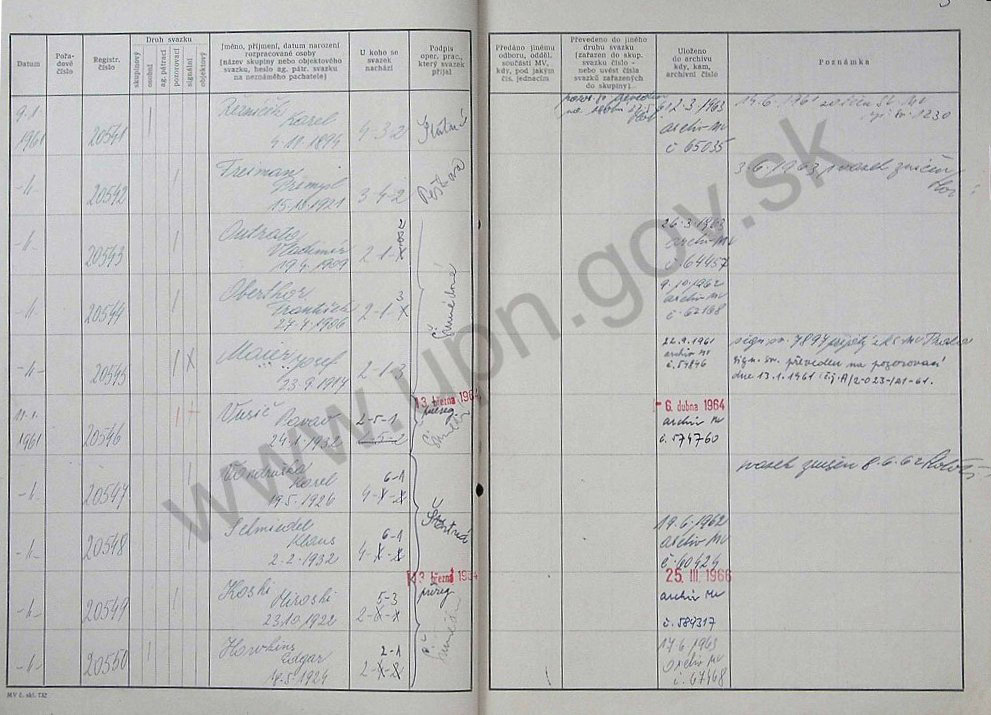 Datum
Pořa-
dové
číslo
Registr.
číslo
Druh svazku
skupinový
osobní
ag. pátrací
pozorovací
signální
objektový
Jméno, příjmení, datum narození
rozpracované osoby
[název skupiny nebo objektového
svazku, heslo ag. pátr. svazku
na neznámého pachatele]
U koho se
svazek
nachází
Podpis
oper. prac.,
který svazek
přijal
Předáno jinému
odboru, odděl.
součásti MV,
kdy, pod jakým
čís. jednacím
Převedeno do jiného
druhu svazku
(zařazen do skup.
svazku číslo -
nebo uvést čísla
svazků zařazených
do skupiny).
Uloženo
do archivu
kdy, kam,
archivní číslo
Poznámka
9.1.
1961
20541
Karel
4.11.1894
4-3-2
12-3-1963
archiv MV
č 65035
14.6.1961
-"-
20542
Freiman
Přemysl
15.10.1921
3-4-2
3.6.1963 svazek zničen
-"-
20543
Outrata
Vladimír
19.4.1909
2-1-X
26-3-1963
archiv MV
č. 64457
-"-
20544
Oberthor
František
27-4-1906
3
2-1-X
9.10.1962
archiv MV
č. 62188
-"-
20545
Maier Josef
23.9.1914
2-1-3
22.9.1961
archiv MV
č. 57846
sign. sv. 7894 přijatý z KS MV Praha
sign. sv. převeden na pozorovací
dne 13.1.1961 č.j. A/2-023/A1-61.
11.1.
1961
20546
Vusič
24.1.1932
2-5-1
2-5-2
13. března 1964
přereg
- 6. dubna 1964
archiv MV
č. 574760
-"-
20547
Vondruška
Karel
19.5.1926
6-1
4-X-X
svazek zničen 8.6.62
-"-
20548
Schmiedel
Klaus
2-2-1932
6-1
4-X-X
Šťastná
19.6.1962
archiv MV
č. 60424
-"-
20549
Koshi
Hiroshi
23.10.1922
5-3
2-X-X
13. března 1964
přereg
25. III. 1966
archiv MV
č. 589317
-"-
20550
Howkins
Edgar
18.5.1924
2-1
2-X-X
17.6.1963
archiv MV
č. 67468
MV č. skl. 732
www.upn.gov.sk